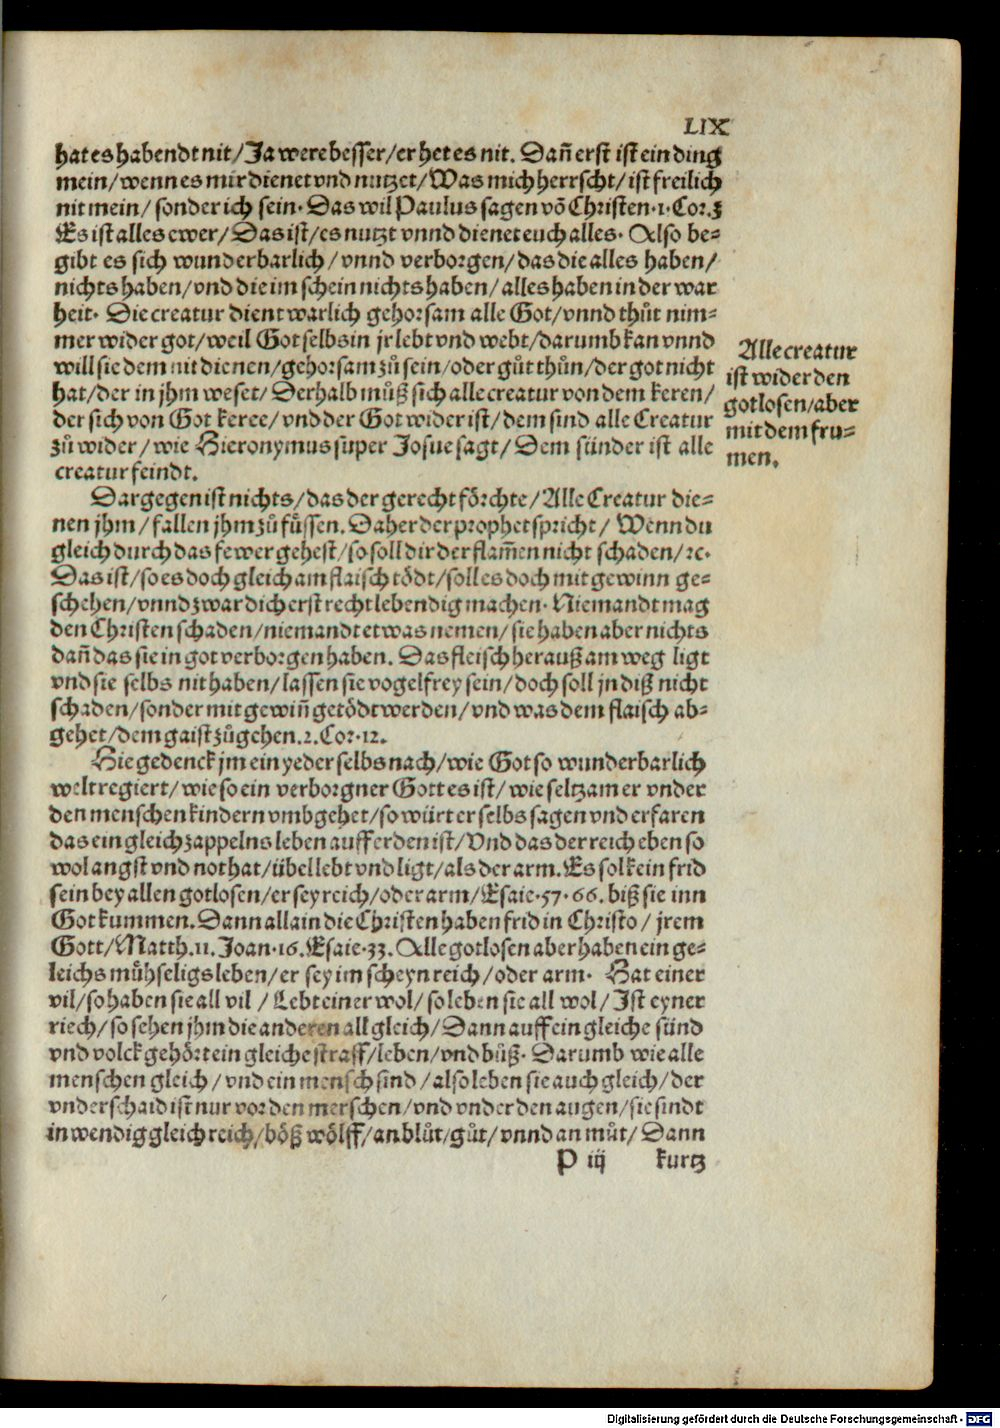 LIX
hat es habendt nit/ Ja were besser/ er het es nit. Dañ erst ist ein ding
mein/ wenn es mir dienet vnd nutzet/ Was mich herrscht/ ist freilich
nit mein/ sonder ich sein. Das wil Paulus sagen võ Christen. 1. Cor. 3
Es ist alles ewer/ Das ist/ es nutzt vnnd dienet euch alles. Also be-
gibt es sich wunderbarlich/ vnnd verborgen/ das die alles haben/
nichts haben/ vnd die im schein nichts haben/ alles haben in der war
heit. Die creatur dient warlich gehorsam alle Got/ vnnd thůt nim-
mer wider got/ weil Got selbs in jr lebt vnd webt/ darumb kan vnnd
will sie dem nit dienen/ gehorsam zů sein/ oder gůt thůn/ der got nicht
hat/ der in jhm weset/ Derhalb můß sich alle creatur von dem keren/
der sich von Got keree/ vnd der Got wider ist/ dem sind alle Creatur
zů wider/ wie Hieronymus super Josue sagt/ Dem sünder ist alle
creatur feindt.
Alle creatur
ist wider den
gotlosen/ aber
mit dem fru-
men.
Dargegen ist nichts/ das der gerecht förchte/ Alle Creatur die-
nen jhm/ fallen jhm zů fůssen. Daher der prophet spricht/ Wenn du
gleich durch das fewer gehest/ so soll dir der flam̄en nicht schaden/ ꝛc.
Das ist/ so es doch gleich am flaisch tödt/ soll es doch mit gewinn ge-
schehen/ vnnd zwar dich erst recht lebendig machen. Niemandt mag
den Christen schaden/ niemandt etwas nemen/ sie haben aber nichts
dañ das sie in got verborgen haben. Das fleisch herauß am weg ligt
vnd sie selbs nit haben/ lassen sie vogelfrey sein/ doch soll jn diß nicht
schaden/ sonder mit gewiñ getödt werden/ vnd was dem flaisch ab-
gehet/ dem gaist zůgehen. 2. Cor. 12.
Hie gedenck jm ein yeder selbs nach/ wie Got so wunderbarlich
welt regiert/ wie so ein verborgner Gott es ist/ wie seltzam er vnder
den menschen kindern vmbgehet/ so würt er selbs sagen vnd erfaren
das ein gleich zappelns leben auff erden ist/ Vnd das der reich eben so
wol angst vnd not hat/ übel lebt vnd ligt/ als der arm. Es sol kein frid
sein bey allen gotlosen/ er sey reich/ oder arm/ Esaie. 57. 66. biß sie inn
Got kummen. Dann allain die Christen haben frid in Christo/ jrem
Gott/ Matth. 11. Joan. 16. Esaie. 33. Alle gotlosen aber haben ein ge-
leichs mühseligs leben/ er sey im scheyn reich/ oder arm. Hat einer
vil/ so haben sie all vil/ Lebt einer wol/ so leben sie all wol/ Ist eyner
riech/ so sehen jhm die anderen all gleich/ Dann auff ein gleiche sünd
vnd volck gehört ein gleiche straff/ leben/ vnd bůß. Darumb wie alle
menschen gleich/ vnd ein mensch sind/ also leben sie auch gleich/ der
vnderschaid ist nur vor den merschen/ vnd vnder den augen/ sie sindt
inwendig gleich reich/ böß wölff/ an blůt/ gůt/ vnnd an můt/ Dann
P iij kurtz
Digitalisierung gefördert durch die Deutsche Forschungsgemeinschaft - DFG